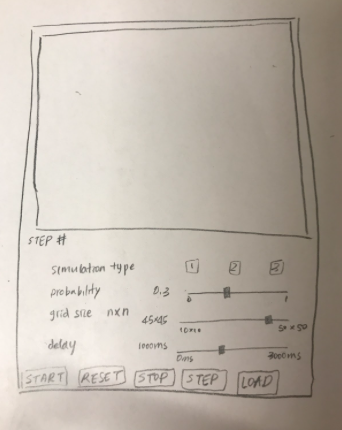 STEP #
simulation type 1 2 3
probability 0.3 0 1
grid size nxn 45x45 10x10 50x50
delay 1000ms 0ms 3000ms
START RESET STOP STEP LOAD